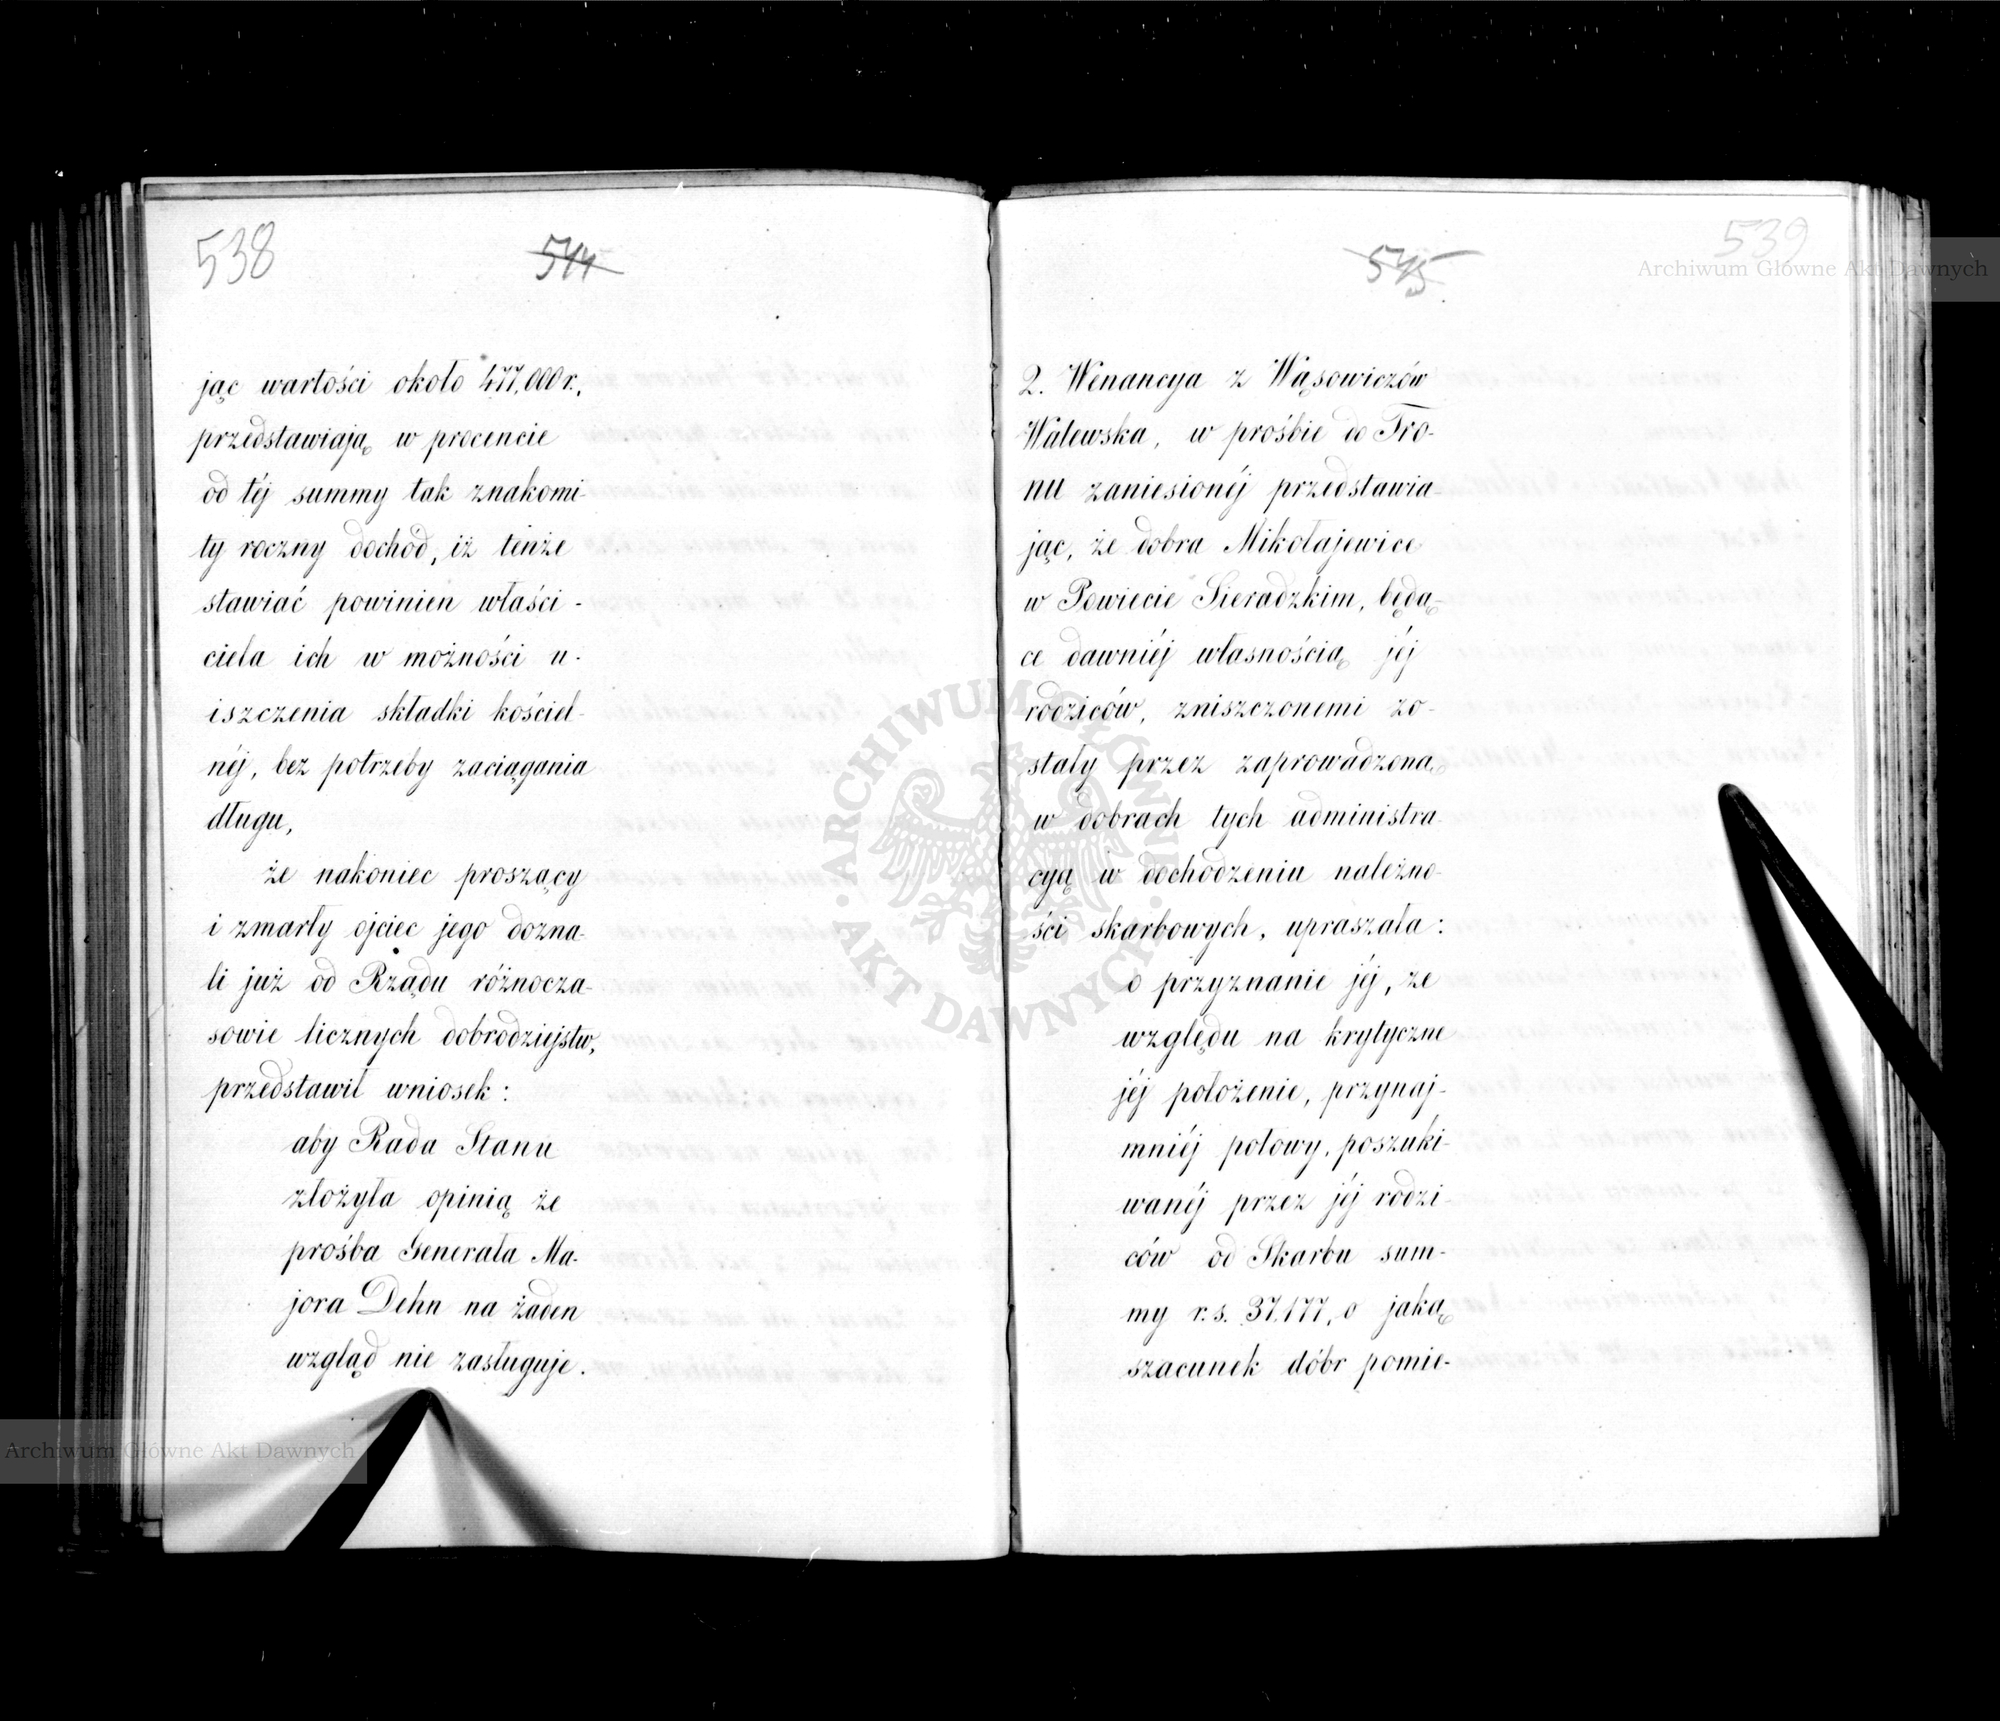 538
544
jąc wartości około 477,000 r.,
przedstawiają w procencie
od téj summy tak znakomi-
ty roczny dochód, iż tenże
stawiać powinien właści-
ciela ich w możności u-
iszczenia składki kościel-
néj, bez potrzeby zaciągania
długu,
że nakoniec proszący
i zmarły ojciec jego dozna-
li już od Rządu różnocza-
sowie licznych dobrodziejstw,
przedstawił wniosek:
aby Rada Stanu
złożyła opinią że
prośba Generała Ma-
jora Dehn na żaden
wzgląd nie zasługuje.
539
545
2. Wenancya z Wąsowiczów
Walewska, w prośbie do Tro-
nu zaniesionéj przedstawia-
jąc, że dobra Mikołajewice
w Powiecie Sieradzkim, będą-
ce dawniéj własnością jéj
rodziców, zniszczonemi zo-
stały przez zaprowadzoną
w dobrach tych administra-
cyą w dochodzeniu należno-
ści skarbowych, upraszała:
o przyznanie jéj, ze
względu na krytyczne
jéj położenie, przynaj-
mniéj połowy, poszuki-
wanéj przez jéj rodzi-
ców od Skarbu sum-
my r.s. 37,177, o jaką
szacunek dóbr pomie-
Archiwum Główne Akt Dawnych
Archiwum Główne Akt Dawnych
ARCHIWUM GŁÓWNE
AKT DAWNYCH